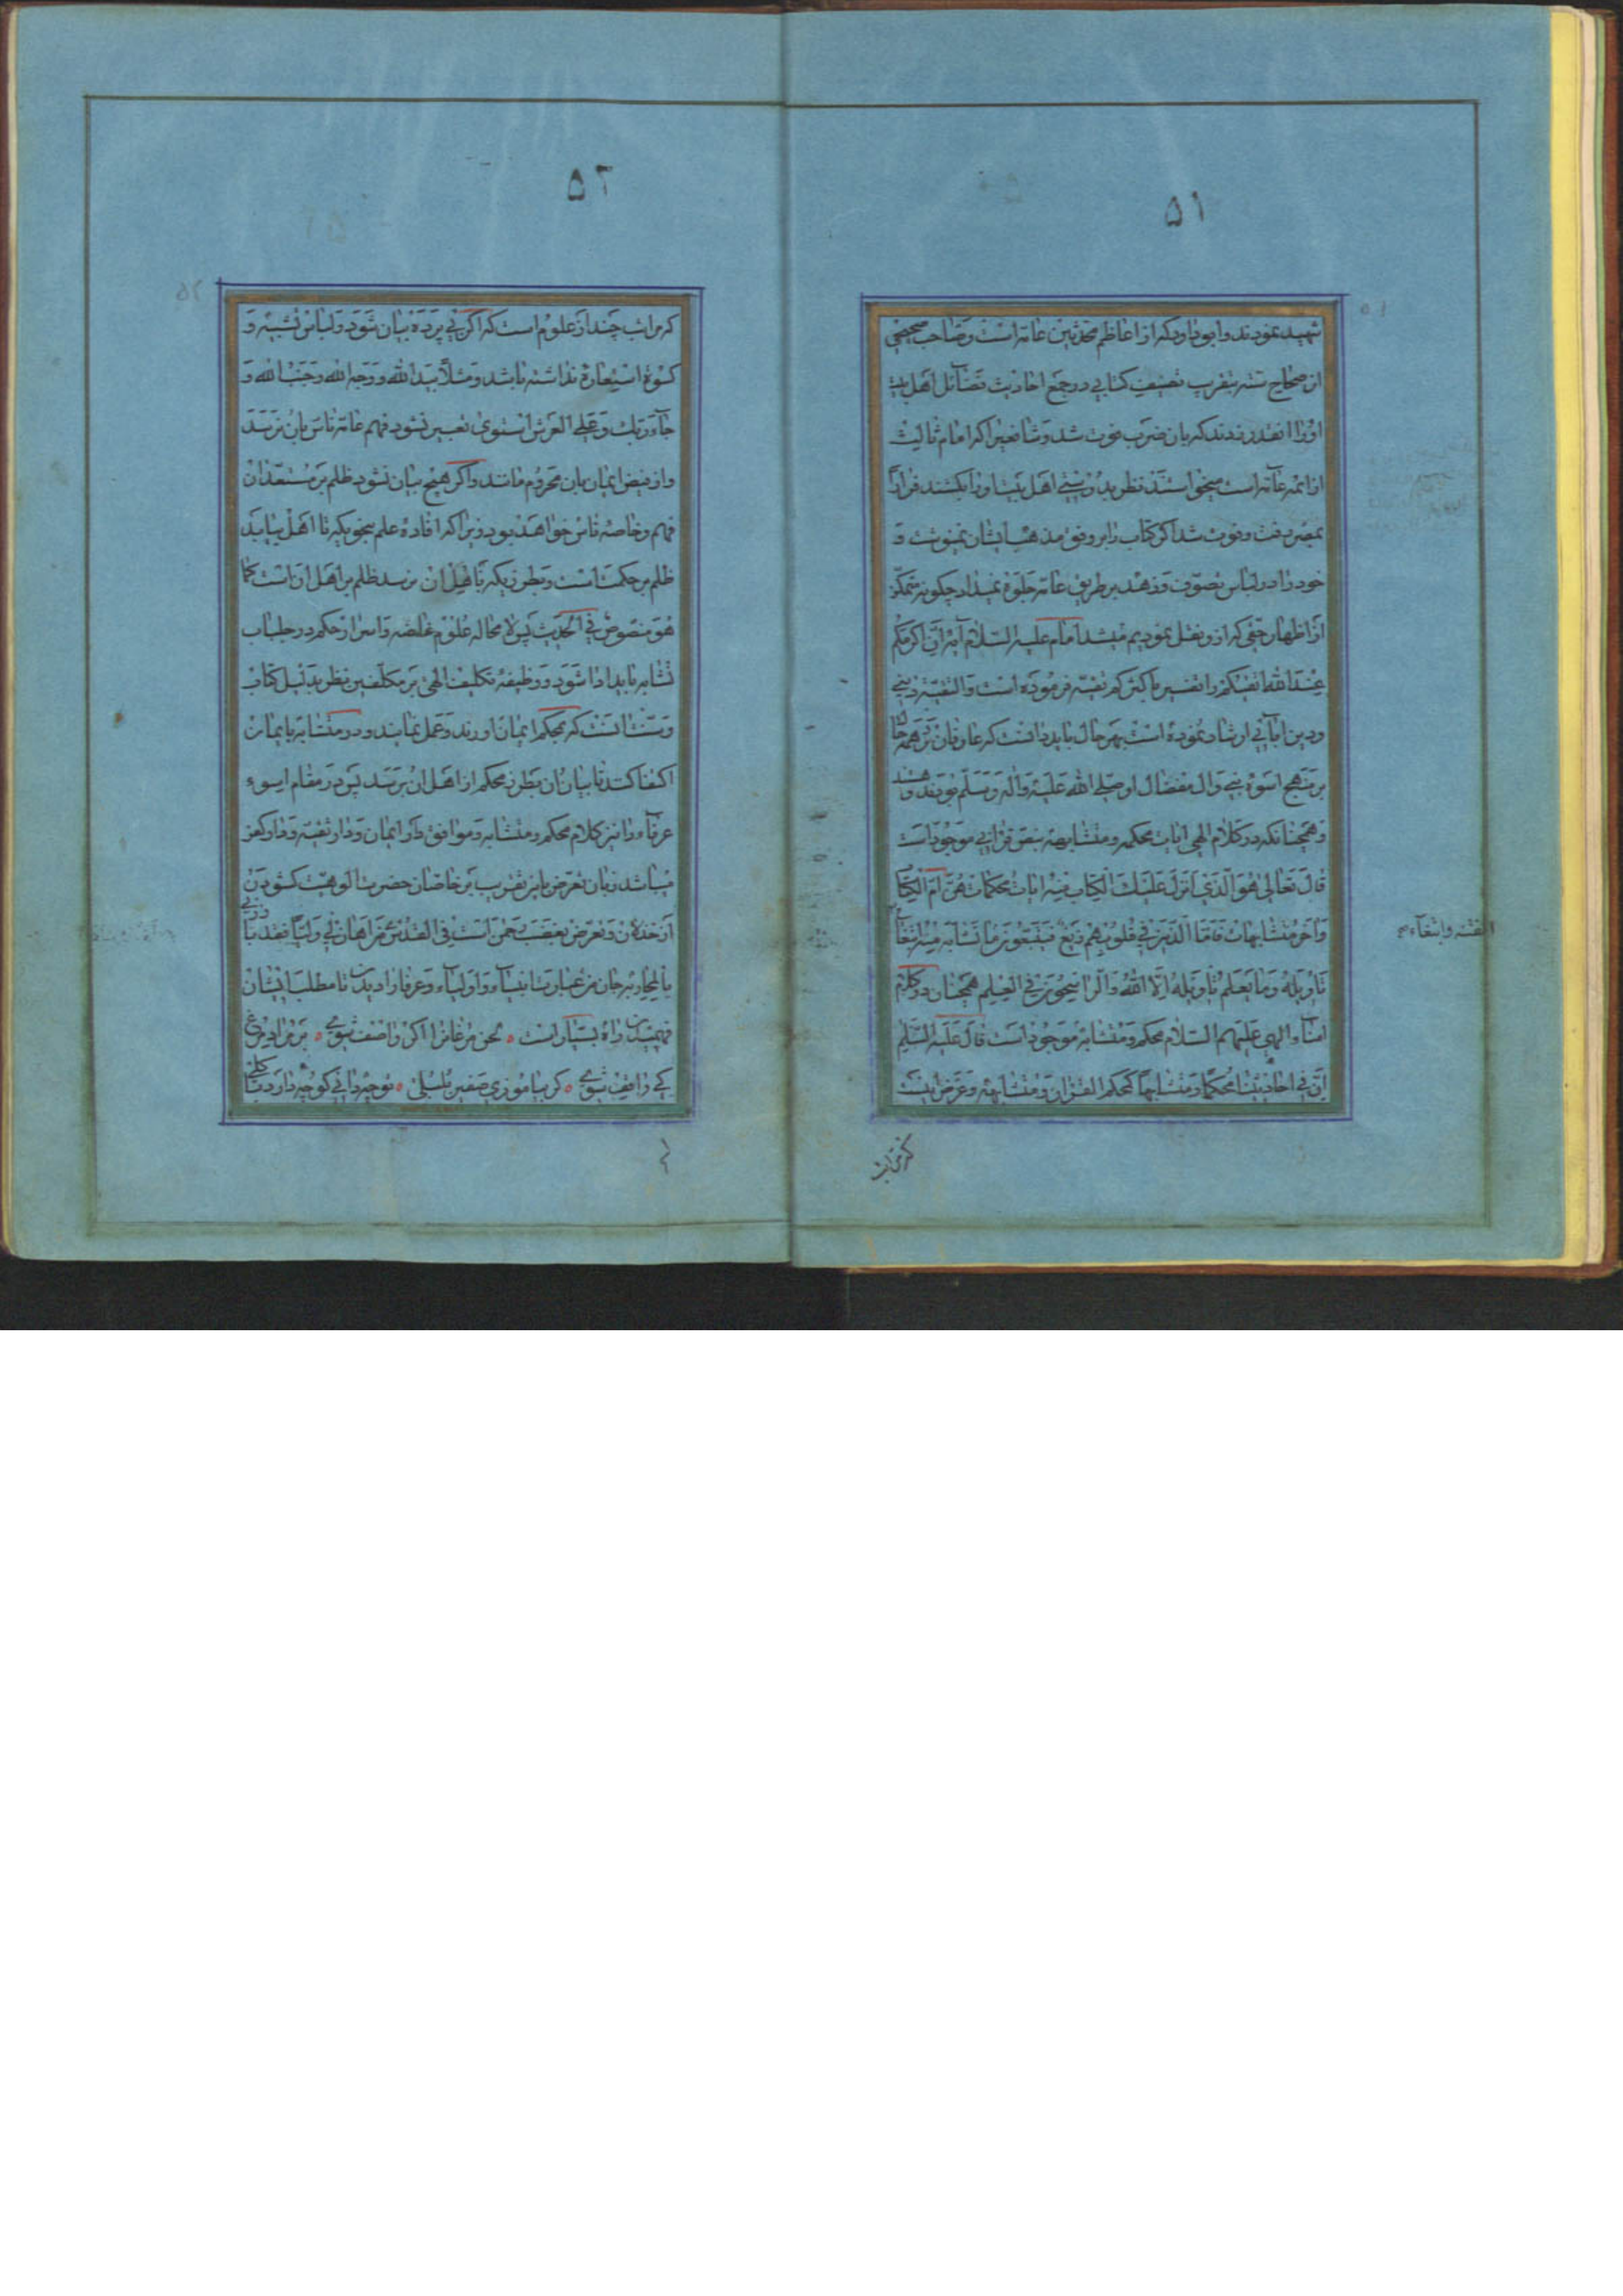 ۵۱
شهید نمودند و ابو داود که از اعاظم محدثین عامه است و صاحب صحیحی
از صحاح سته بتقریب تصنیف کتابی در جمع احادیث فضآئل اهل بیت
او را انقدر زدند که بان ضرب فوت شد و شافعی را که امام ثالث
از ائمه عامه است میخواستند نظر بدوستی اهل بیت او را بکشند فرارًا
بمصر رفت و فوت شد اگر کتاب را بر وفق مذهب ایشان نمینوشت و
خود را در لباس تصوف و زهد بر طریق عامه جلوه نمیداد چگونه متمکن
از اظهار حقی که از او نقل نمودیم میشد امام علیه السلام آیه انّ اکرمکم
عند الله اتقیکم را تفسیر باکثرکم تقیة فرموده است و التقیة دینی
و دین ابآئی ارشاد نموده است بهر حال باید دانست که عارفان در همه حال
بر منهج اسوه نبی و ال مفضال او صلی الله علیه و آله و سلم بوده‌اند و هستند
و همچنانکه در کلام الهی ایات محکمه و متشابهه بنص قرانی موجود است
قال تعالی هو الذی انزل علیک الکتاب فیه ایات محکمات هن ام الکتاب
و اخر متشابهات فاما الذین فی قلوبهم زیغ فیتبعون ما تشابه منه ابتغآء
الفتنه و ابتغآء صح
تاویله و ما یعلم تاویله الا الله و الراسخون فی العلم همچنان در کلام
امنآء الهی علیهم السلام محکم و متشابه موجود است قال علیه السلام
ان فی احادیثنا محکما و متشابها کمحکم القران و متشابهه و غرض اینست
که مراتب
۵۲
که مراتب چند از علوم است که اگر بی پرده بیان شود و لباس تشبیه و
کسوة استعاره نداشته باشد و مثلاً بید الله و وجه الله و جنب الله و
جآء ربک و علی العرش استوی تعبیر نشود فهم عامه ناس بان نرسد
و از فیض ایمان بان محروم مانند و اگر هیچ بیان نشود ظلم بر مستعدان
فهم و خاصه ناس خواهد بود زیرا که افاده علم بنحویکه نا اهل بیابد
ظلم بر حکمت است و بطرزیکه باهل ان نرسد ظلم بر اهل ان است کما
هو منصوص فی الحدیث پس لا محاله علوم غامضه و اسرار حکم در جلباب
تشابه باید ادا شود و وظیفه تکلیف الهی بر مکلفین نظر بدلیل کتاب
و سنت انست که بمحکم ایمان اورند و عمل نمایند و در متشابه بایمان
اکتفا کنند تا بیان ان بطرز محکم از اهل ان برسد پس در مقام اسوه
عرفآء را نیز کلام محکم و متشابه و موافق دار ایمان و دار تقیه و دار کفر
میباشد زبان تعرض باین تقریب بر خاصان حضرت الوهیت کشودن
از خذلان و تعرض بغضب رحمن است فی القدسی من اهان لی ولیّا فقد بارزنی
بالمحاربه جان من عبارت انبیآء و اولیآء و عرفا را دیدن تا مطلب ایشان
فهمیدن راه بسیار است ٥ لحن مرغانرا اگر واصف شوی ٥ بر مراد مرغ
کی واقف شوی ٥ گر بیاموزی صفیر بلبلی ٥ تو چه دانی کو چه دارد با گلی